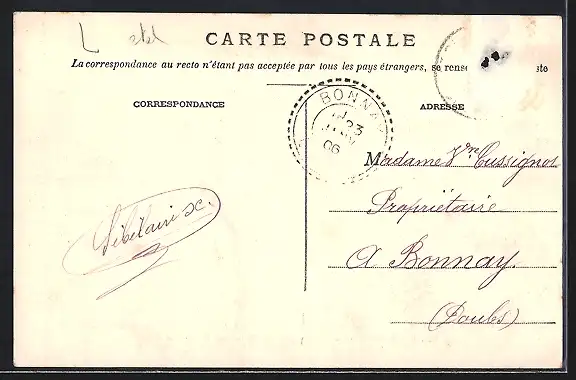 CARTE POSTALE
La correspondance au recto n'étant pas acceptée par tous les pays étrangers, se rense
CORRESPONDANCE
ADRESSE
BONNAY
23
06
Madame Vve Cussignot
Propriétaire
A Bonnay.
(Doubs)